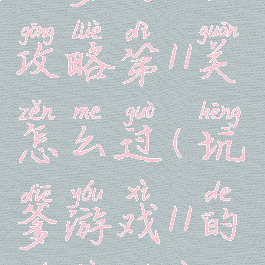 gōng lüè dì guān
攻略第11关
zěn me guò kēng
怎么过(坑
diē yóu xì de
爹游戏11的